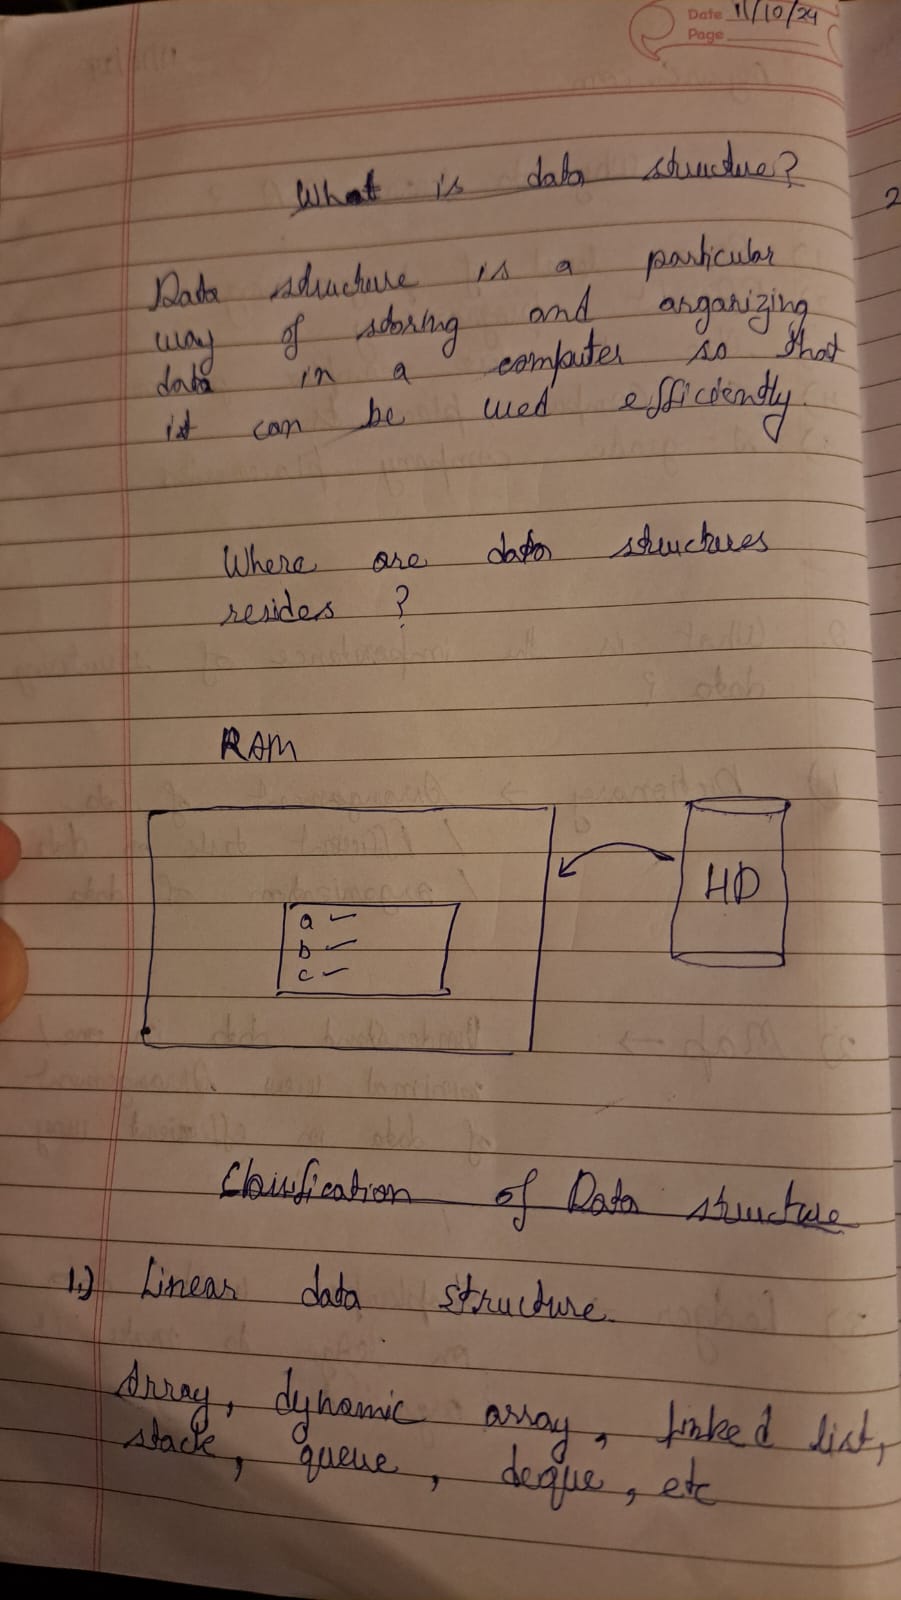 Date 11/10/24
Page
What is data structure?
Data structure is a particular
way of storing and organizing
data in a computer so that
it can be used efficiently.
Where are data structures
resides ?
RAM
HD
a
b
c
Classification of Data structure
1.) Linear data structure.
Array, dynamic array, linked list,
stack, queue, deque, etc
2